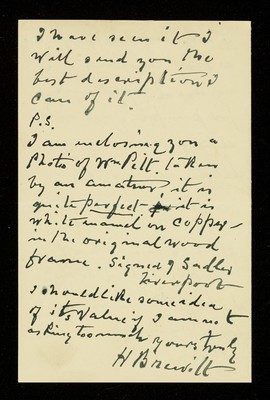 I have seen it I
will send you the
best description I
can of it.
P.S.
I am inclosing you a
Photo of Wm Pitt. taken
by an amateur, it is
quite perfect it is
white enamel on copper -
in the original wood
frame. Signed J Sadler
Liverpool
I should like some idea
of its value if I am not
asking too much yours truly
H Brewitt